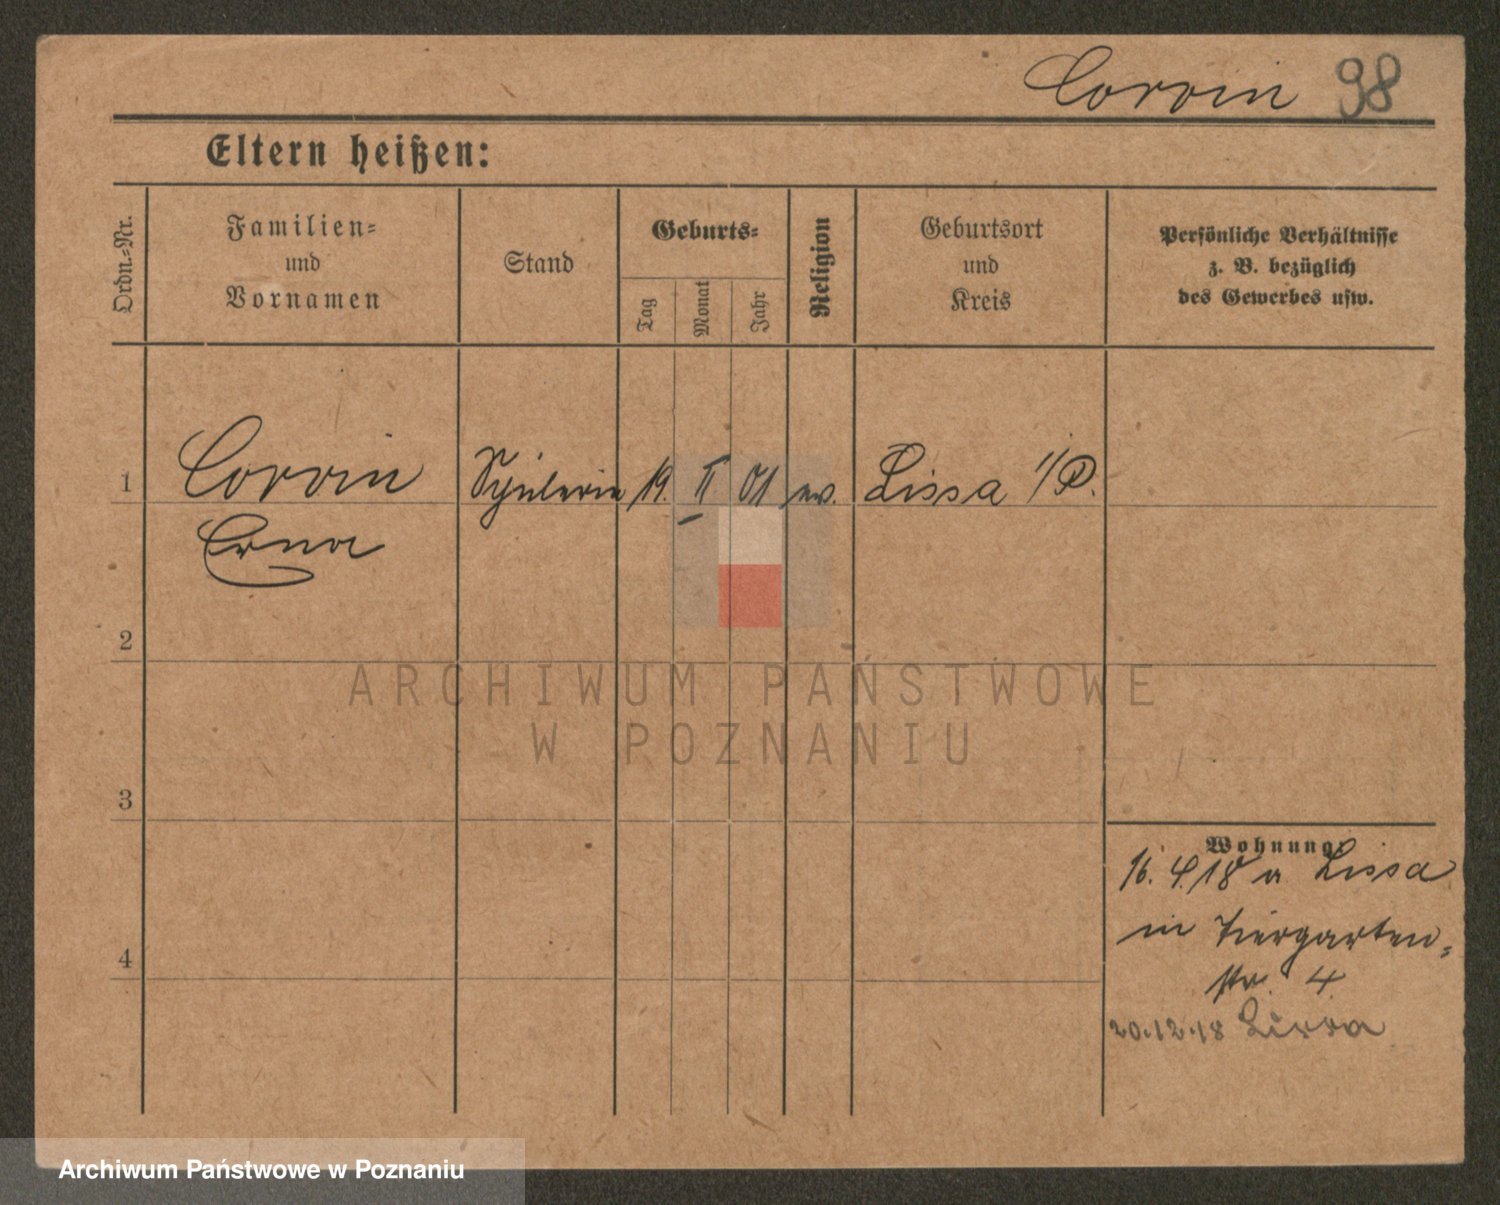 Corvin 98
Eltern heißen:
Ordn.-Nr.
Familien-
und
Vornamen
Stand
Geburts-
Tag
Monat
Jahr
Religion
Geburtsort
und
Kreis
Persönliche Verhältnisse
z. B. bezüglich
des Gewerbes usw.
1 Corvin Schülerin 19. II 01 ev. Lissa i/P.
Erna
2
3
4
Wohnung:
16. 4. 18 a Lissa
in Tiergarten-
str. 4
20.12.18 Lissa
ARCHIWUM PAŃSTWOWE
W POZNANIU
Archiwum Państwowe w Poznaniu